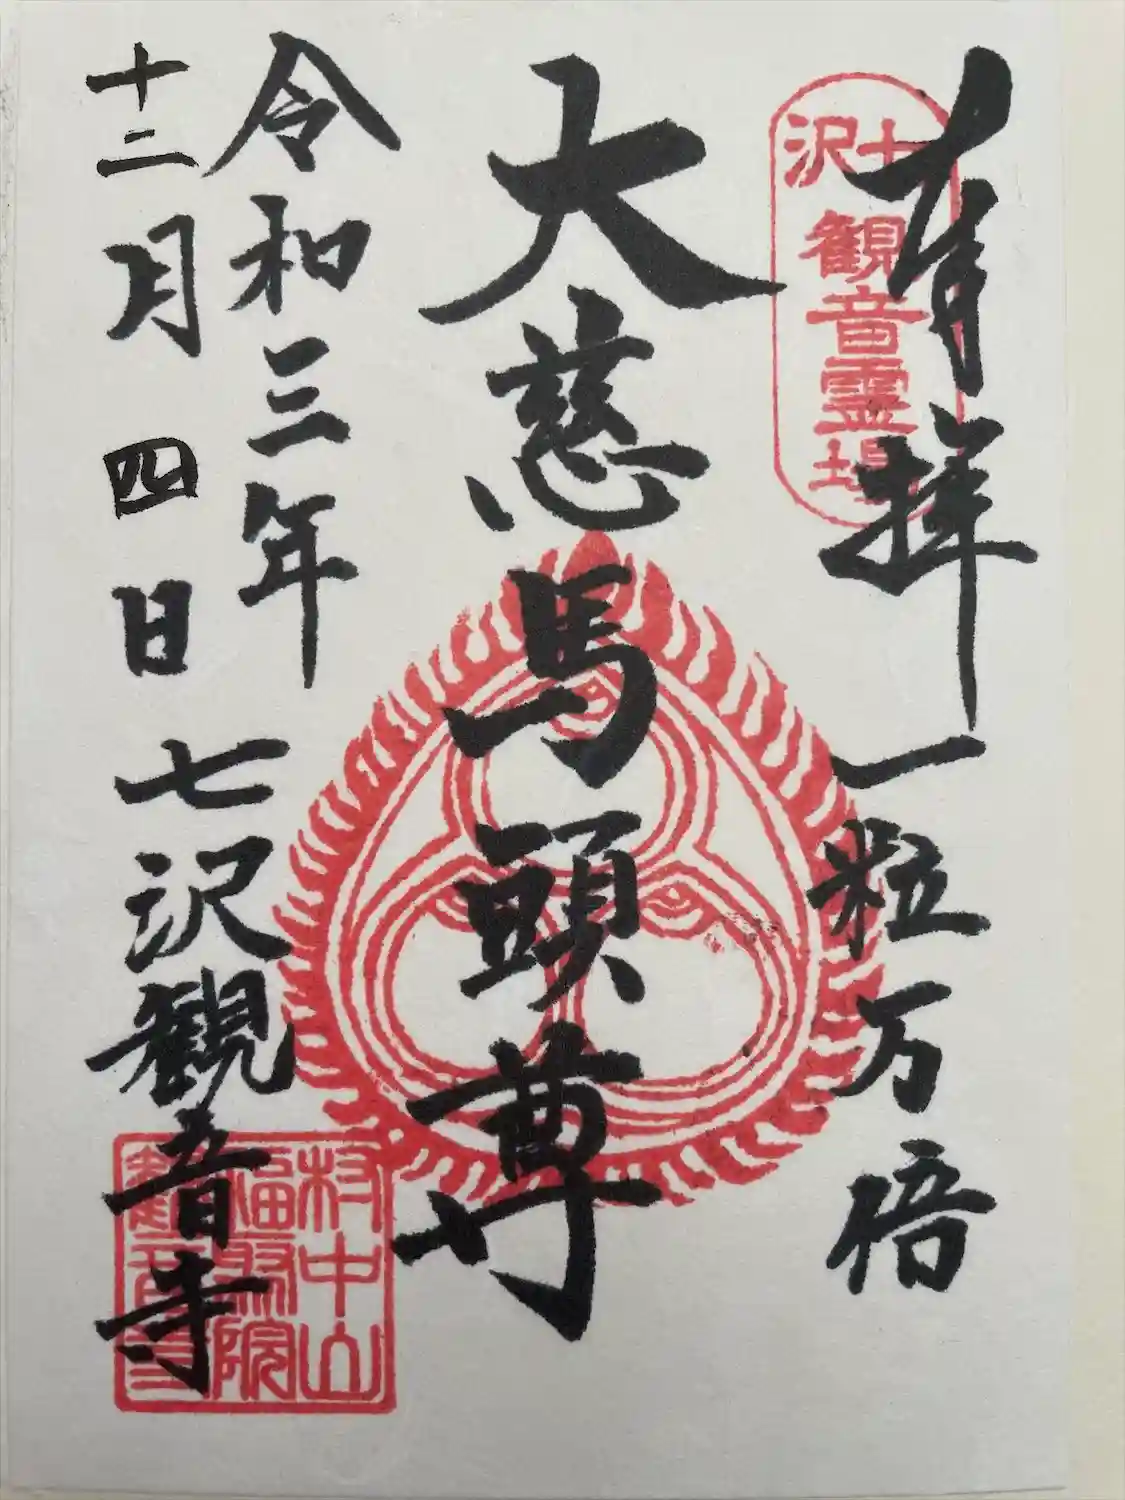 奉拝
一粒万倍
七沢
観音霊場
大慈馬頭尊
令和三年
十二月四日
七沢観音寺
村中山
福聚院
観音寺